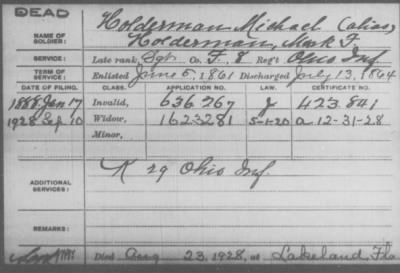 DEAD
Holderman, Michael (alias)
NAME OF SOLDIER: Holderman, Mark F.
SERVICE: Late rank, Sgt. Co. F, 8 Reg't Ohio Inf.
TERM OF SERVICE: Enlisted June 5, 1861 Discharged July 13, 1864
DATE OF FILING. CLASS. APPLICATION NO. LAW. CERTIFICATE NO.
1888 Jan 17 Invalid, 636.767 J 423.841
1928 Sep 10 Widow, 1623281 5-1-20 a-12-31-28
Minor,
ADDITIONAL SERVICES: K 29 Ohio Inf.
REMARKS:
Died Aug 23, 1928, at Lakeland, Fla